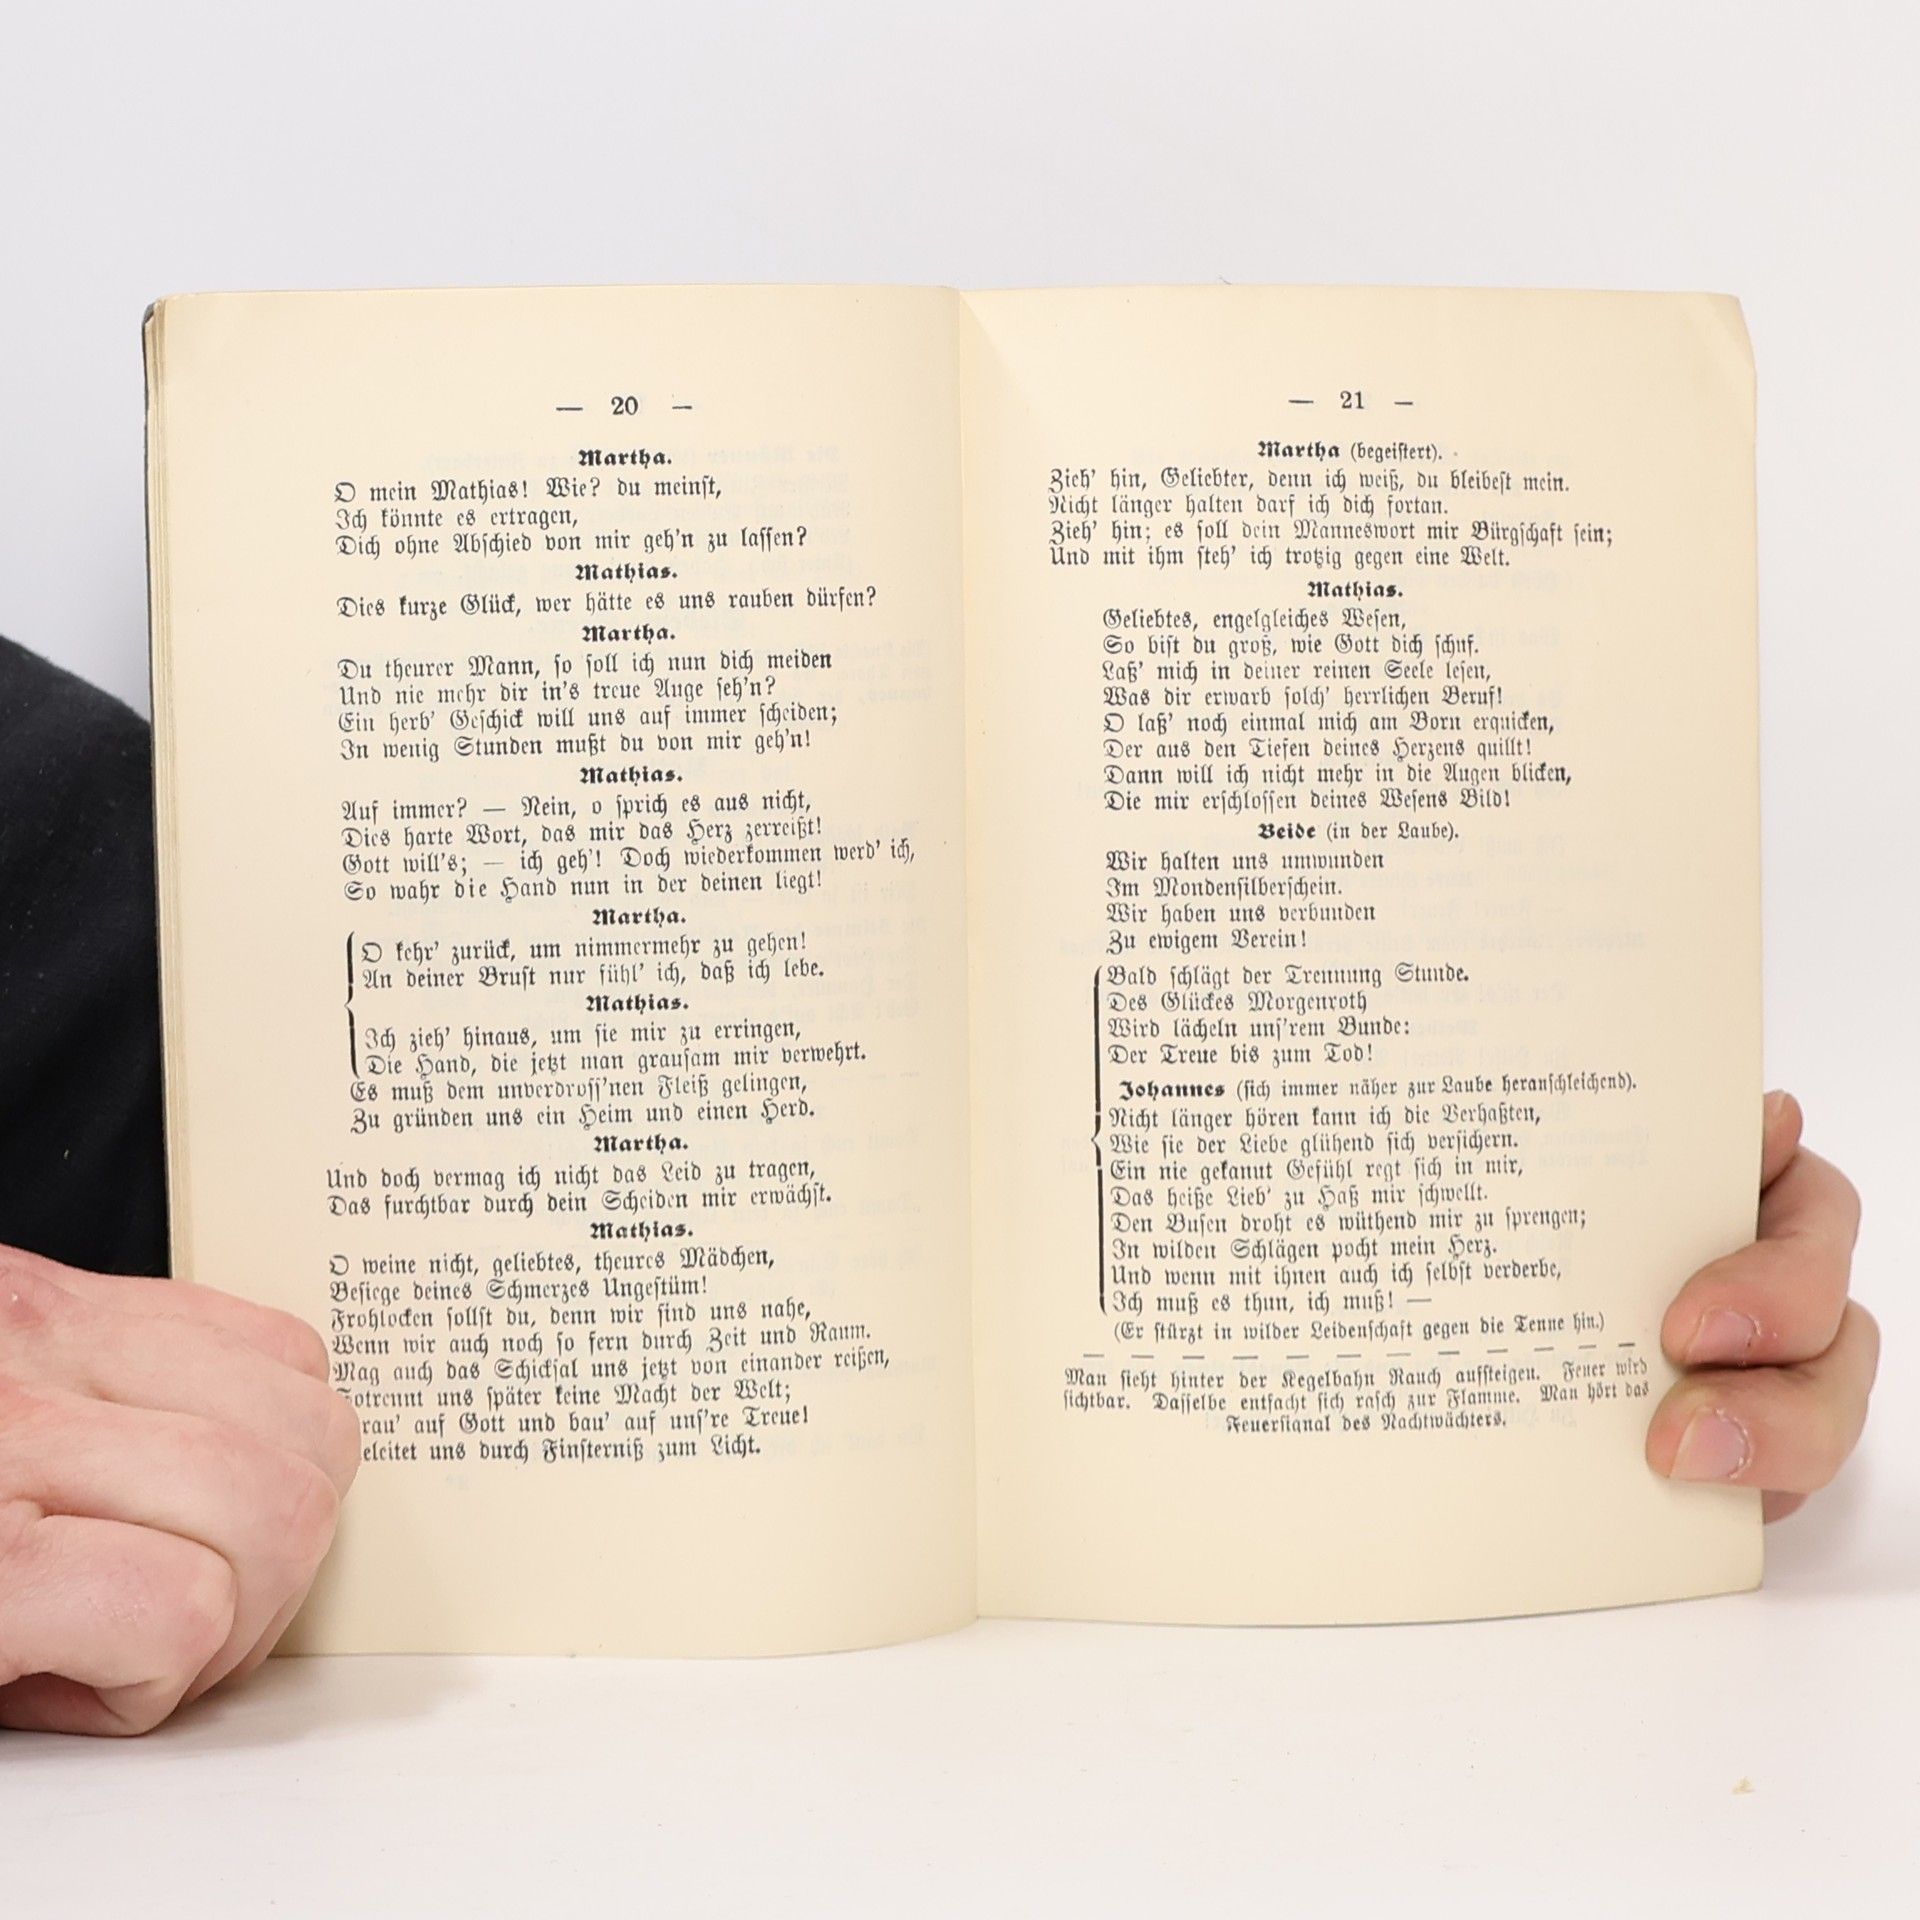 — 20 —
Martha.
O mein Mathias! Wie? du meinst,
Ich könnte es ertragen,
Dich ohne Abschied von mir geh'n zu lassen?
Mathias.
Dies kurze Glück, wer hätte es uns rauben dürfen?
Martha.
Du theurer Mann, so soll ich nun dich meiden
Und nie mehr dir in's treue Auge seh'n?
Ein herb' Geschick will uns auf immer scheiden;
In wenig Stunden mußt du von mir geh'n!
Mathias.
Auf immer? — Nein, o sprich es aus nicht,
Dies harte Wort, das mir das Herz zerreißt!
Gott will's; — ich geh'! Doch wiederkommen werd' ich,
So wahr die Hand nun in der deinen liegt!
Martha.
O kehr' zurück, um nimmermehr zu gehen!
An deiner Brust nur fühl' ich, daß ich lebe.
Mathias.
Ich zieh' hinaus, um sie mir zu erringen,
Die Hand, die jetzt man grausam mir verwehrt.
Es muß dem unverdross'nen Fleiß gelingen,
Zu gründen uns ein Heim und einen Herd.
Martha.
Und doch vermag ich nicht das Leid zu tragen,
Das furchtbar durch dein Scheiden mir erwächst.
Mathias.
O weine nicht, geliebtes, theures Mädchen,
Besiege deines Schmerzes Ungestüm!
Frohlocken sollst du, denn wir sind uns nahe,
Wenn wir auch noch so fern durch Zeit und Raum.
Mag auch das Schicksal uns jetzt von einander reißen,
uns später keine Macht der Welt;
auf Gott und bau' auf uns're Treue!
uns durch Finsterniß zum Licht.
— 21 —
Martha (begeistert).
Zieh' hin, Geliebter, denn ich weiß, du bleibest mein.
Nicht länger halten darf ich dich fortan.
Zieh' hin; es soll dein Manneswort mir Bürgschaft sein;
Und mit ihm steh' ich trotzig gegen eine Welt.
Mathias.
Geliebtes, engelgleiches Wesen,
So bist du groß, wie Gott dich schuf.
Laß' mich in deiner reinen Seele lesen,
Was dir erwarb solch' herrlichen Beruf!
O laß' noch einmal mich am Born erquicken,
Der aus den Tiefen deines Herzens quillt!
Dann will ich nicht mehr in die Augen blicken,
Die mir erschlossen deines Wesens Bild!
Beide (in der Laube).
Wir halten uns umwunden
Im Mondensilberschein.
Wir haben uns verbunden
Zu ewigem Verein!
Bald schlägt der Trennung Stunde.
Des Glückes Morgenroth
Wird lächeln uns'rem Bunde:
Der Treue bis zum Tod!
Johannes (sich immer näher zur Laube heranschleichend).
Nicht länger hören kann ich die Verhaßten,
Wie sie der Liebe glühend sich versichern.
Ein nie gekannt Gefühl regt sich in mir,
Das heiße Lieb' zu Haß mir schwellt.
Den Busen droht es wüthend mir zu sprengen;
In wilden Schlägen pocht mein Herz.
Und wenn mit ihnen auch ich selbst verderbe,
Ich muß es thun, ich muß! —
(Er stürzt in wilder Leidenschaft gegen die Tenne hin.)
— — — — — — — — — — —
Man sieht hinter der Kegelbahn Rauch aufsteigen. Feuer wird
sichtbar. Dasselbe entfacht sich rasch zur Flamme. Man hört das
Feuersignal des Nachtwächters.